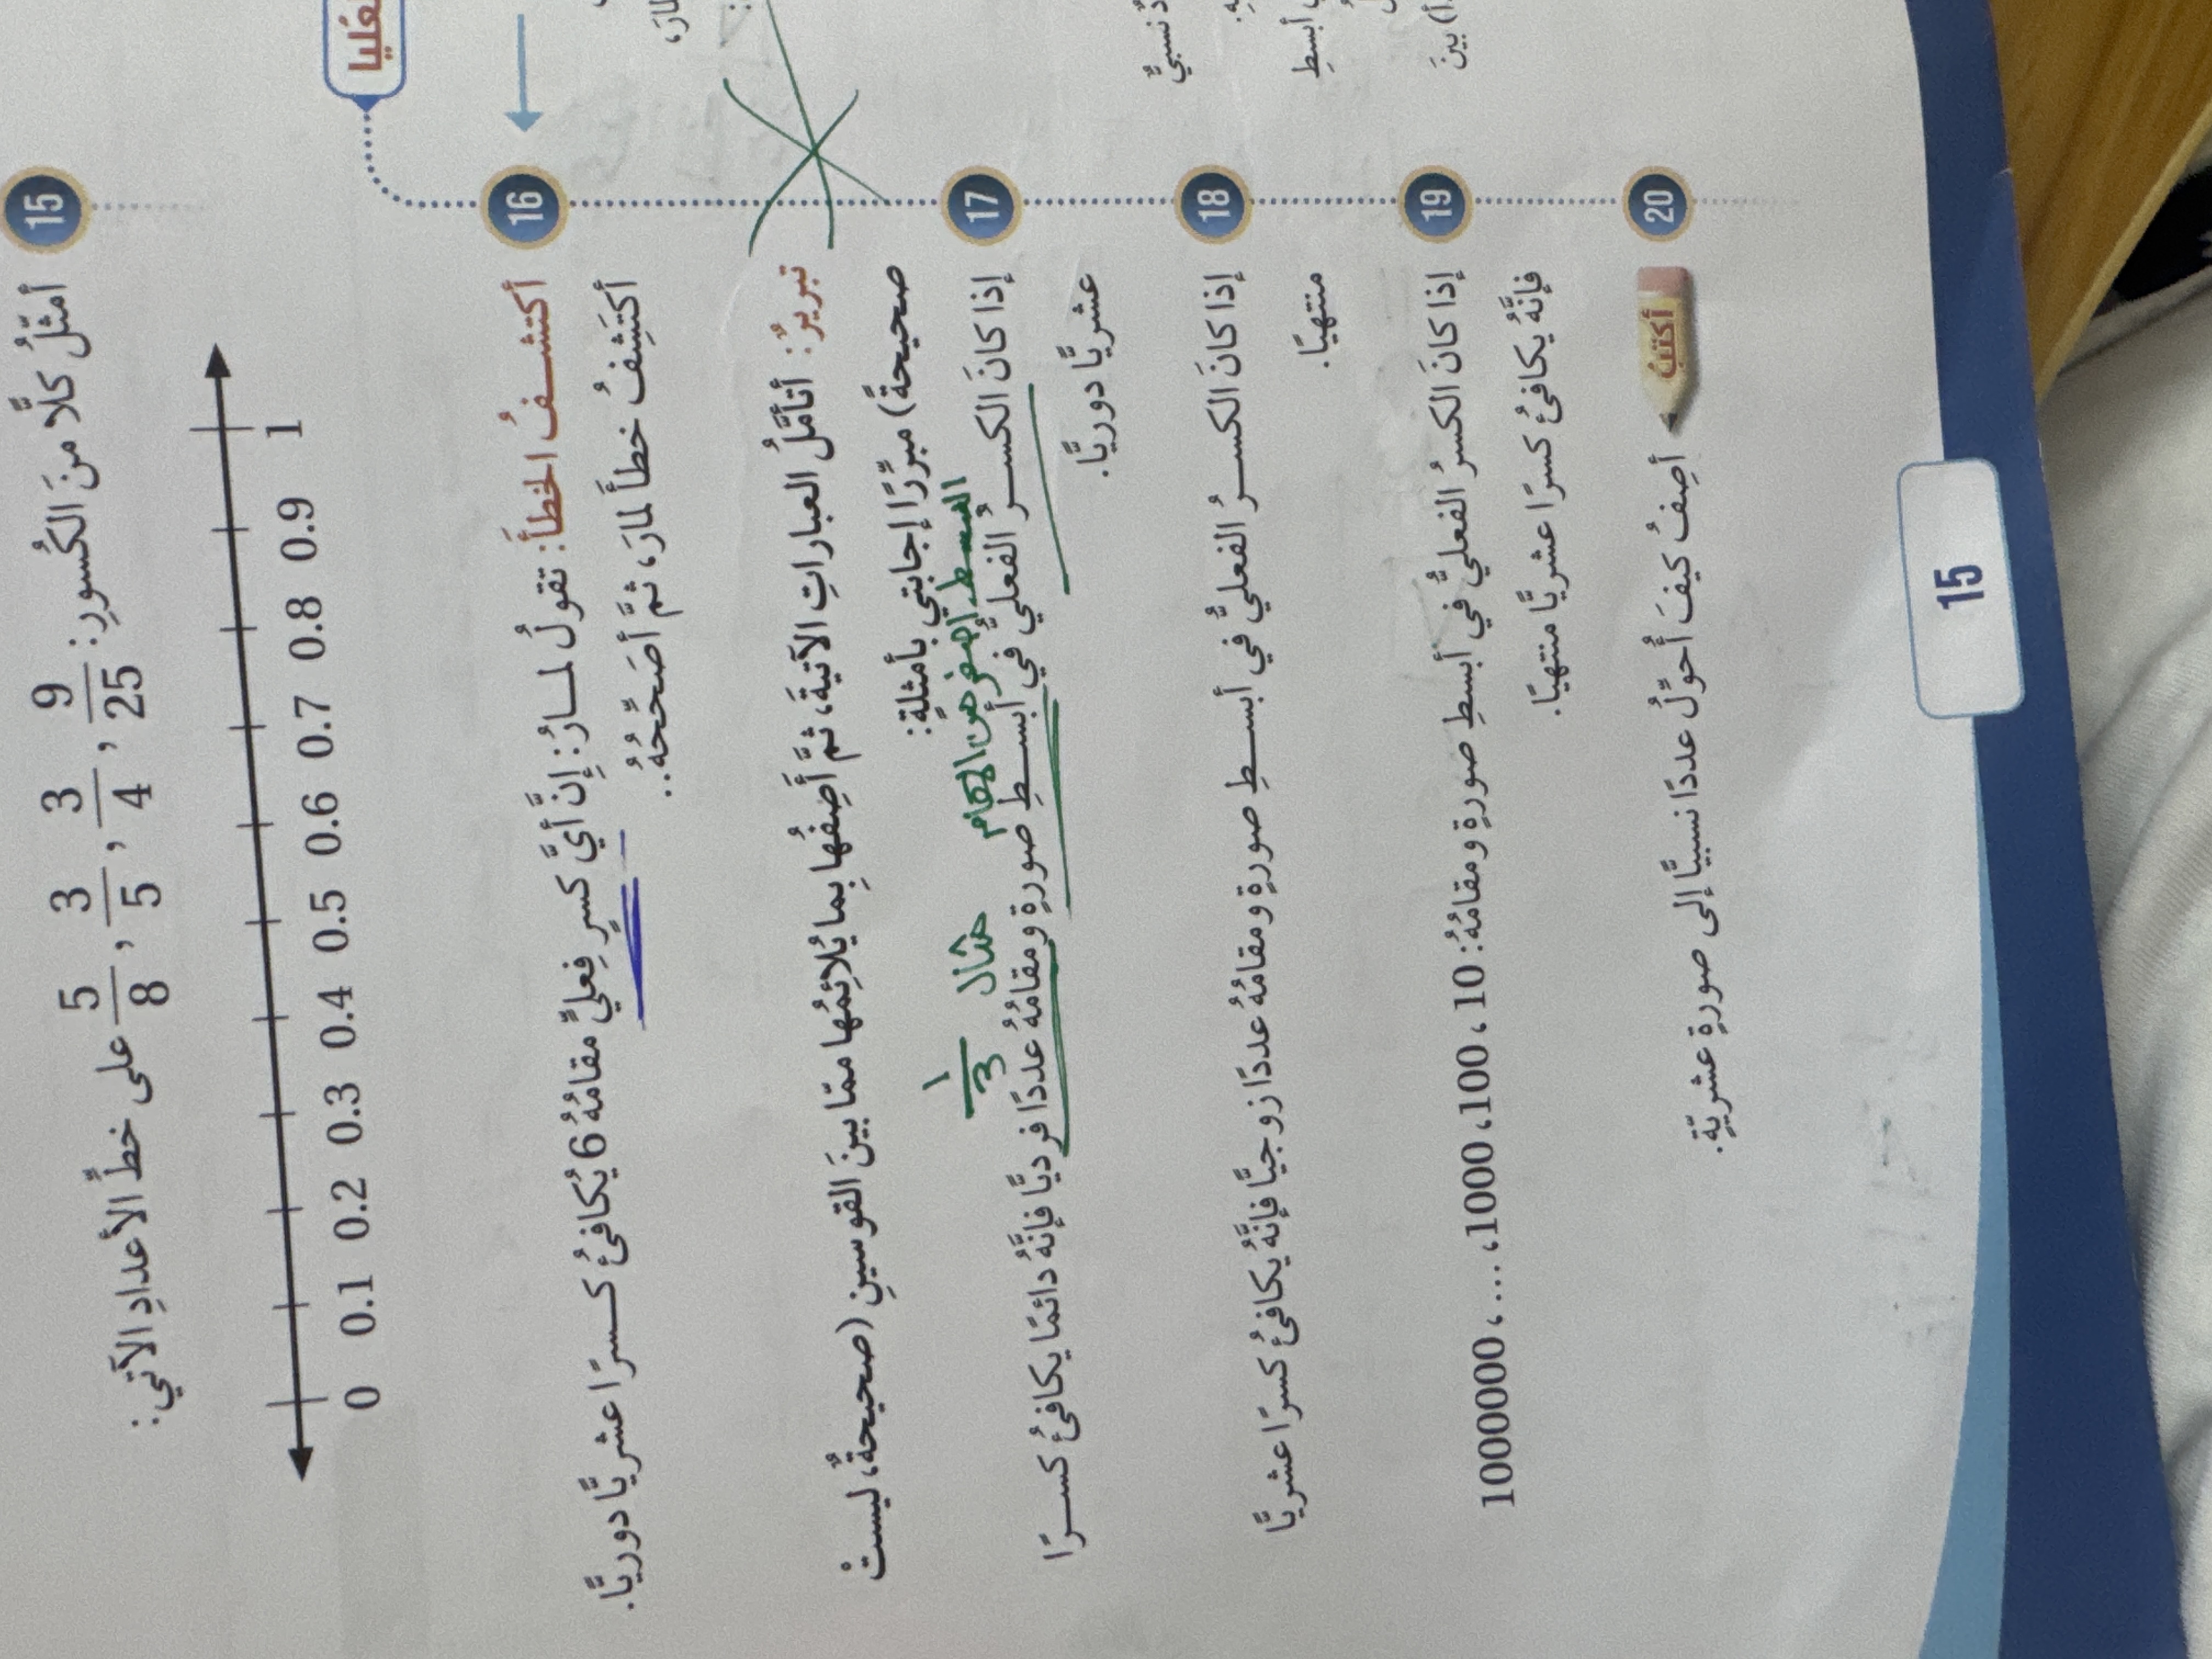 15 أمثّلُ كلًّا منَ الكُسورِ: 9/25 , 3/4 , 3/5 , 5/8 على خطِّ الأعدادِ الآتي:
0 0.1 0.2 0.3 0.4 0.5 0.6 0.7 0.8 0.9 1
عُليا
16 أكتشفُ الخطأَ: تقولُ لمارُ: إنَّ أيَّ كسرٍ فِعليٍّ مقامُهُ 6 يُكافئُ كسرًا عشريًّا دوريًّا.
أكتَشِفُ خطأَ لمارَ، ثمَّ أُصَحِّحُهُ..
تبريرٌ: أتأمَّلُ العباراتِ الآتيةَ، ثمَّ أَصِفُها بِما يُلائِمُها ممّا بينَ القوسينِ (صحيحةٌ، ليستْ
صحيحةً) مبرِّرًا إجابتي بأمثلةٍ:
البسط أصغر من المقام مثال 1/3
17 إذا كانَ الكسرُ الفعليُّ في أبسطِ صورةٍ ومقامُهُ عددًا فرديًّا فإنَّهُ دائمًا يكافئُ كسرًا
عشريًّا دوريًّا.
18 إذا كانَ الكسرُ الفعليُّ في أبسطِ صورةٍ ومقامُهُ عددًا زوجيًّا فإنَّهُ يُكافئُ كسرًا عشريًّا
منتهيًا.
19 إذا كانَ الكسرُ الفعليُّ في أبسطِ صورةٍ ومقامُهُ: 10 ،100 ،1000 ،.... ،1000000
فإنَّهُ يُكافئُ كسرًا عشريًّا منتهيًا.
20 أكتبُ أصِفُ كيفَ أُحوِّلُ عددًا نسبيًّا إلى صورةٍ عشريّةٍ.
15